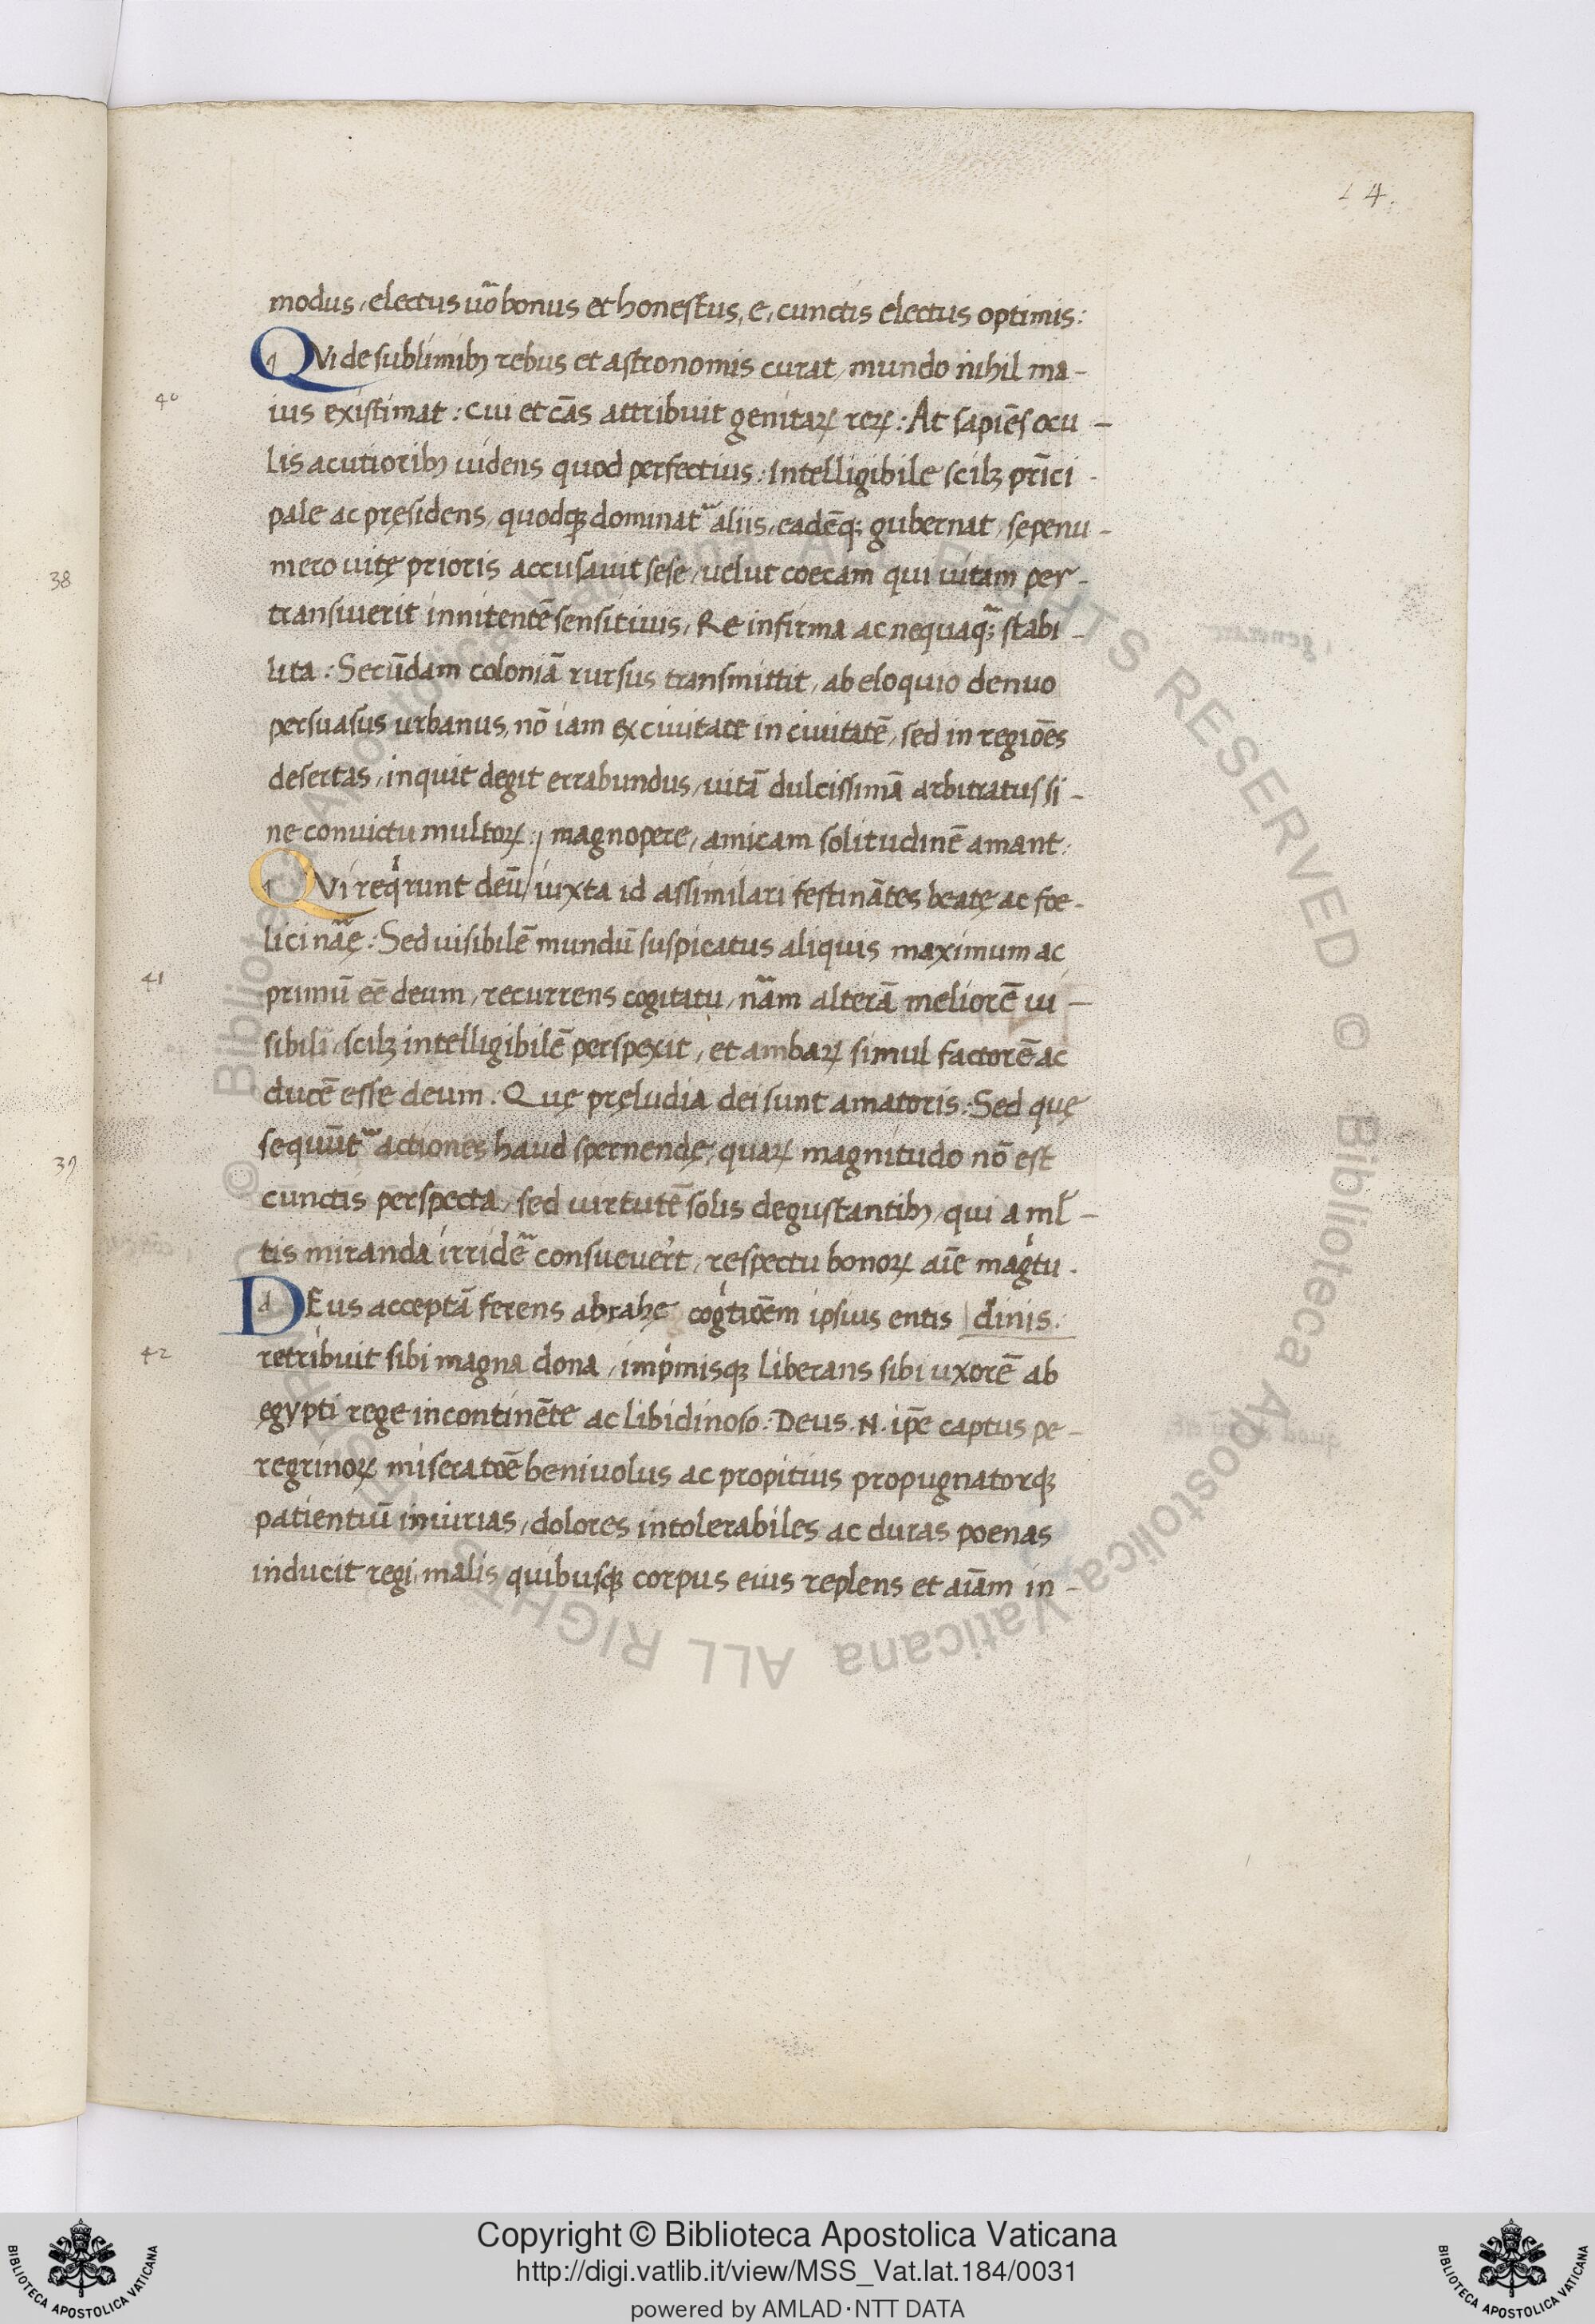 14.
modus, electus uõ bonus et honestus, e, cunctis electus optimis:
QVi de sublimibꝫ rebus et astronomis curat, mundo nihil ma-
40
ius existimat: cui et cãs attribuit genitaꝝ reꝝ: At sapiẽs ocu-
lis acutioribꝫ uidens quod perfectius: Intelligibile scilꝫ prĩci-
pale ac presidens, quodqꝫ dominat᷑ aliis, eadẽqꝫ gubernat, sepenu-
mero uitę prioris accusauit sese, uelut coecam qui uitam per-
38
transiuerit innitentẽ sensitiuis, Re infirma ac nequaqꝫ stabi-
lita: Secũdam coloniã rursus transmittit, ab eloquio denuo
persuasus urbanus, nõ iam ex ciuitate in ciuitatẽ, sed in regiões
desertas, inquit degit errabundus, uitã dulcissimã arbitratus si-
ne conuictu multoꝝ: magnopere, amicam solitudinẽ amant:
QVi reqͥrunt deũ, iuxta id assimilari festinãtes beatę ac foe-
lici nãę: Sed uisibilẽ mundũ suspicatus aliquis maximum ac
41
primũ eẽ deum, recurrens cogitatu, nãm alterã meliorẽ ui-
sibili, scilꝫ intelligibilẽ perspexit, et ambaꝝ simul factorẽ ac
ducẽ esse deum. Quę pręludia dei sunt amatoris: Sed quę
sequũt᷑ actiones haud spernendę, quaꝝ magnitudo nõ est
39
cunctis perspecta, sed uirtutẽ solis degustantibꝫ, qui a ml̃-
tis miranda irridẽ consueuer̃t, respectu bonoꝝ aĩe magͥtu.
DEus acceptã ferens abrahę cogͥtiõem ipsius entis | dinis.
42
retribuit sibi magna dona, impͥmisqꝫ liberans sibi uxorẽ ab
egypti rege incontinẽte ac libidinoso: Deus. N. ip̃e captus pe-
regrinoꝝ miseratõe beniuolus ac propitius propugnatorqꝫ
patientiũ iniurias, dolores intolerabiles ac duras poenas
inducit regi, malis quibusqꝫ corpus eius replens et aĩam in-
Copyright © Biblioteca Apostolica Vaticana
http://digi.vatlib.it/view/MSS_Vat.lat.184/0031
powered by AMLAD·NTT DATA
BIBLIOTECA APOSTOLICA VATICANA
BIBLIOTECA APOSTOLICA VATICANA
© Biblioteca Apostolica Vaticana ALL RIGHTS RESERVED © Biblioteca Apostolica Vaticana ALL RIGHTS RESERVED